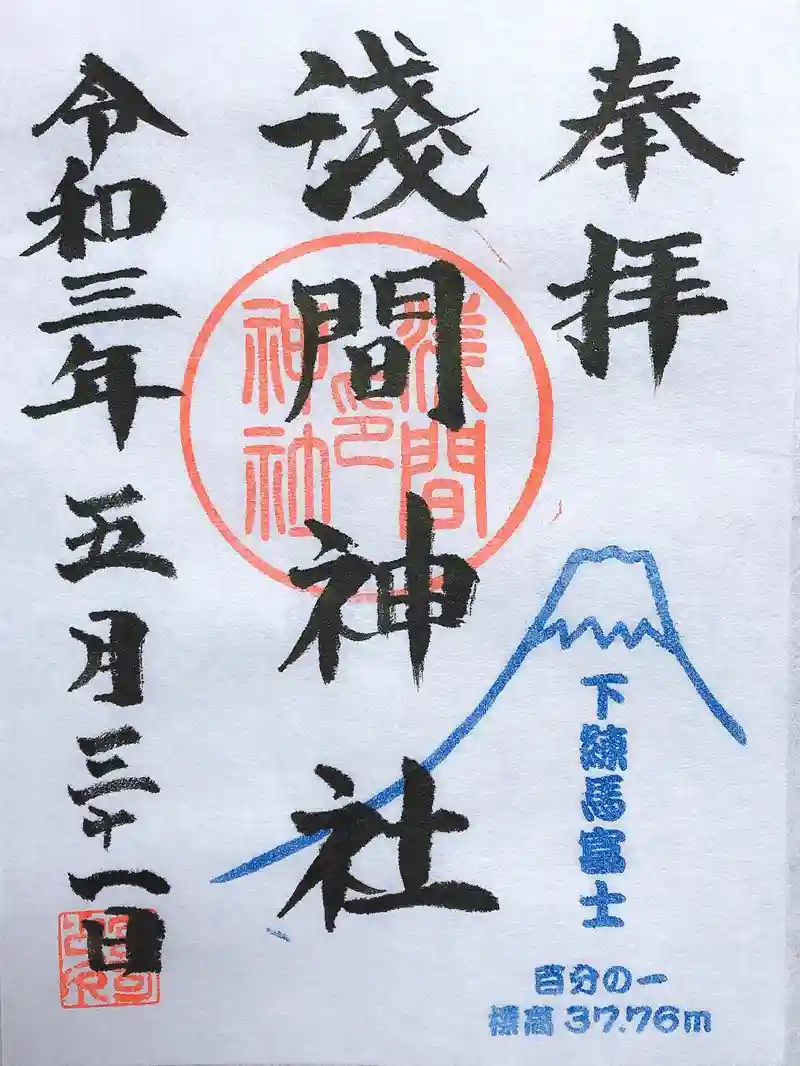 奉拝
淺間神社
淺間神社印
令和三年五月三十一日
下練馬富士
百分の一
標高37.76m